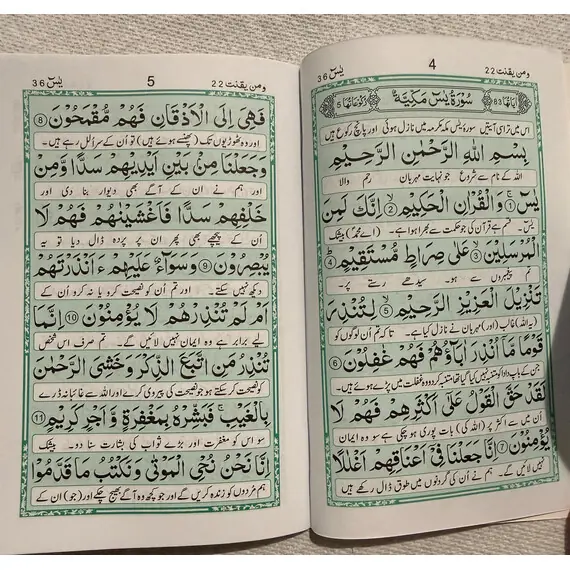 يٰسٓ 36
4
ومن يقنت 22
اٰيَاتُهَا 83
سُوْرَةُ يٰسٓ مَكِّيَّةٌ
رُكُوْعَاتُهَا 5
اس میں تراسی آیتیں سورۃ یٰس مکہ مکرمہ میں نازل ہوئی اور پانچ رکوع ہیں
بِسْمِ اللّٰهِ الرَّحْمٰنِ الرَّحِيْمِ
اللہ کے نام سے شروع جو نہایت مہربان رحم والا
يٰسٓ ۚ ① وَالْقُرْاٰنِ الْحَكِيْمِ ② اِنَّكَ لَمِنَ
یٰس۔ قسم ہے قرآن کی جو حکمت سے بھرا ہوا ہے۔ (اے محمدؐ) بیشک
الْمُرْسَلِيْنَ ③ عَلٰى صِرَاطٍ مُّسْتَقِيْمٍ ④
تم پیغمبروں سے ہو۔ سیدھے رستے پر۔
تَنْزِيْلَ الْعَزِيْزِ الرَّحِيْمِ ⑤ لِتُنْذِرَ
(یہ اللہ) غالب (اور) مہربان نے نازل کیا ہے۔ تاکہ تم ان لوگوں کو
قَوْمًا مَّاۤ اُنْذِرَ اٰبَآؤُهُمْ فَهُمْ غٰفِلُوْنَ ⑥
جن کے باپ دادا کو متنبہ نہیں کیا گیا تھا متنبہ کردو وہ غفلت میں پڑے ہوئے ہیں۔
لَقَدْ حَقَّ الْقَوْلُ عَلٰۤى اَكْثَرِهِمْ فَهُمْ لَا
ان میں سے اکثر پر (اللہ کی) بات پوری ہو چکی ہے سو وہ ایمان
يُؤْمِنُوْنَ ⑦ اِنَّا جَعَلْنَا فِيْۤ اَعْنَاقِهِمْ اَغْلٰلًا
نہیں لائیں گے۔ ہم نے ان کی گردنوں میں طوق ڈال رکھے ہیں
يٰسٓ 36
5
ومن يقنت 22
فَهِيَ اِلَى الْاَذْقَانِ فَهُمْ مُّقْمَحُوْنَ ⑧
اور وہ ٹھوڑیوں تک (پھنسے ہوئے ہیں) تو ان کے سر الل رہے ہیں۔
وَجَعَلْنَا مِنْۢ بَيْنِ اَيْدِيْهِمْ سَدًّا وَّمِنْ
اور ہم نے ان کے آگے بھی دیوار بنا دی اور
خَلْفِهِمْ سَدًّا فَاَغْشَيْنٰهُمْ فَهُمْ لَا
ان کے پیچھے بھی پھر ان پر پردہ ڈال دیا تو یہ
يُبْصِرُوْنَ ⑨ وَسَوَآءٌ عَلَيْهِمْ ءَاَنْذَرْتَهُمْ
دیکھ نہیں سکتے۔ اور تم ان کو نصیحت کرو یا نہ کرو ان کے
اَمْ لَمْ تُنْذِرْهُمْ لَا يُؤْمِنُوْنَ ⑩ اِنَّمَا
لیے برابر ہے وہ ایمان نہیں لائیں گے۔ تم صرف اس شخص
تُنْذِرُ مَنِ اتَّبَعَ الذِّكْرَ وَخَشِيَ الرَّحْمٰنَ
کو نصیحت کر سکتے ہو جو نصیحت کی پیروی کرے اور اللہ سے غائبانہ ڈرے
بِالْغَيْبِ ۚ فَبَشِّرْهُ بِمَغْفِرَةٍ وَّاَجْرٍ كَرِيْمٍ ⑪
سو اس کو مغفرت اور بڑے ثواب کی بشارت سنا دو۔ بیشک
اِنَّا نَحْنُ نُحْيِ الْمَوْتٰى وَنَكْتُبُ مَا قَدَّمُوْا
ہم مردوں کو زندہ کریں گے اور جو کچھ وہ آگے بھیج چکے اور (جو) ان کے